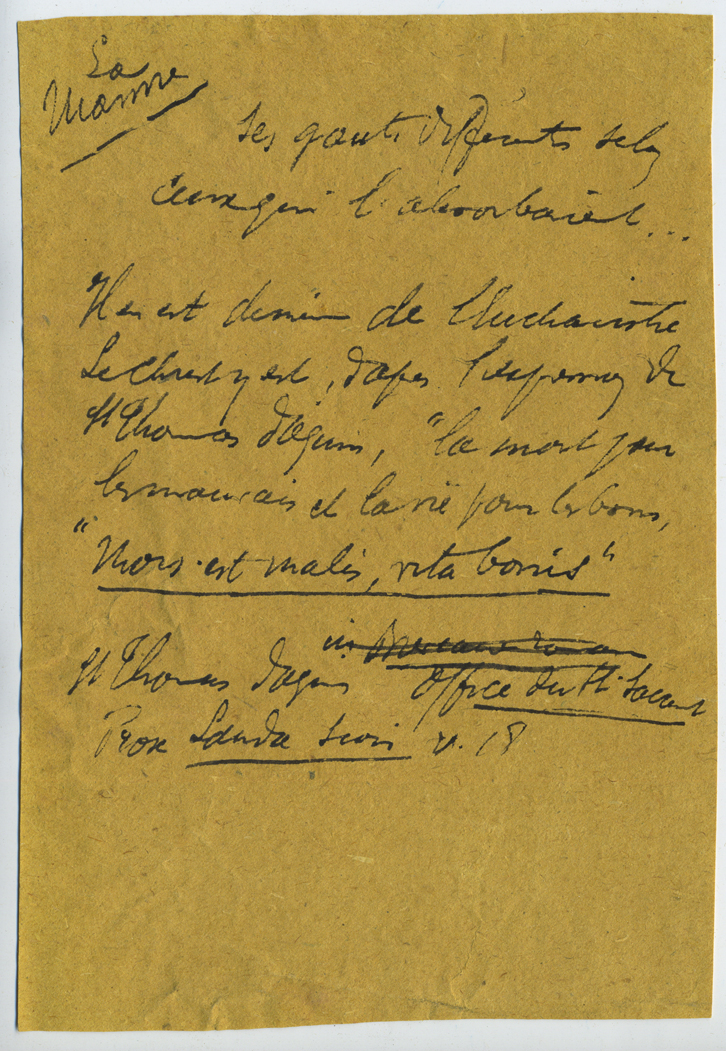 La
Manne
Ses gouts différents selon
ceux qui l'absorbaient...
Il en est de même de l'Eucharistie
Le Christ y est, d'après l'expression de
St Thomas d'Aquin, "la mort pour
les mauvais et la vie pour les bons,
"Mors est malis, vita bonis"
in Breviaire romain
St Thomas d'Aquin Office du St. Sacrement
Prose Lauda Sion v. 18